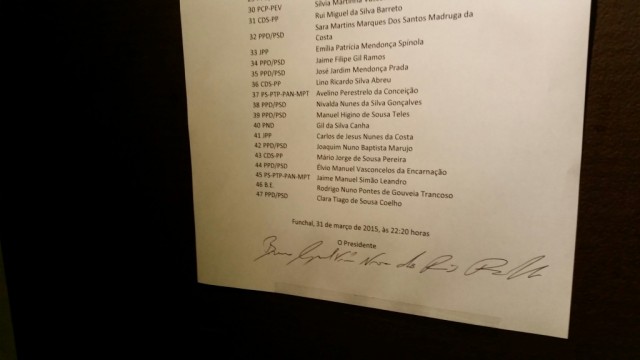 30 PCP-PEV Sílvia Martinha
31 CDS-PP Rui Miguel da Silva Barreto
32 PPD/PSD Sara Martins Marques Dos Santos Madruga da
Costa
33 JPP Emília Patrícia Mendonça Spínola
34 PPD/PSD Jaime Filipe Gil Ramos
35 PPD/PSD José Jardim Mendonça Prada
36 CDS-PP Lino Ricardo Silva Abreu
37 PS-PTP-PAN-MPT Avelino Perestrelo da Conceição
38 PPD/PSD Nivalda Nunes da Silva Gonçalves
39 PPD/PSD Manuel Higino de Sousa Teles
40 PND Gil da Silva Canha
41 JPP Carlos de Jesus Nunes da Costa
42 PPD/PSD Joaquim Nuno Baptista Marujo
43 CDS-PP Mário Jorge de Sousa Pereira
44 PPD/PSD Élvio Manuel Vasconcelos da Encarnação
45 PS-PTP-PAN-MPT Jaime Manuel Simão Leandro
46 B.E. Rodrigo Nuno Pontes de Gouveia Trancoso
47 PPD/PSD Clara Tiago de Sousa Coelho
Funchal, 31 de março de 2015, às 22:20 horas
O Presidente